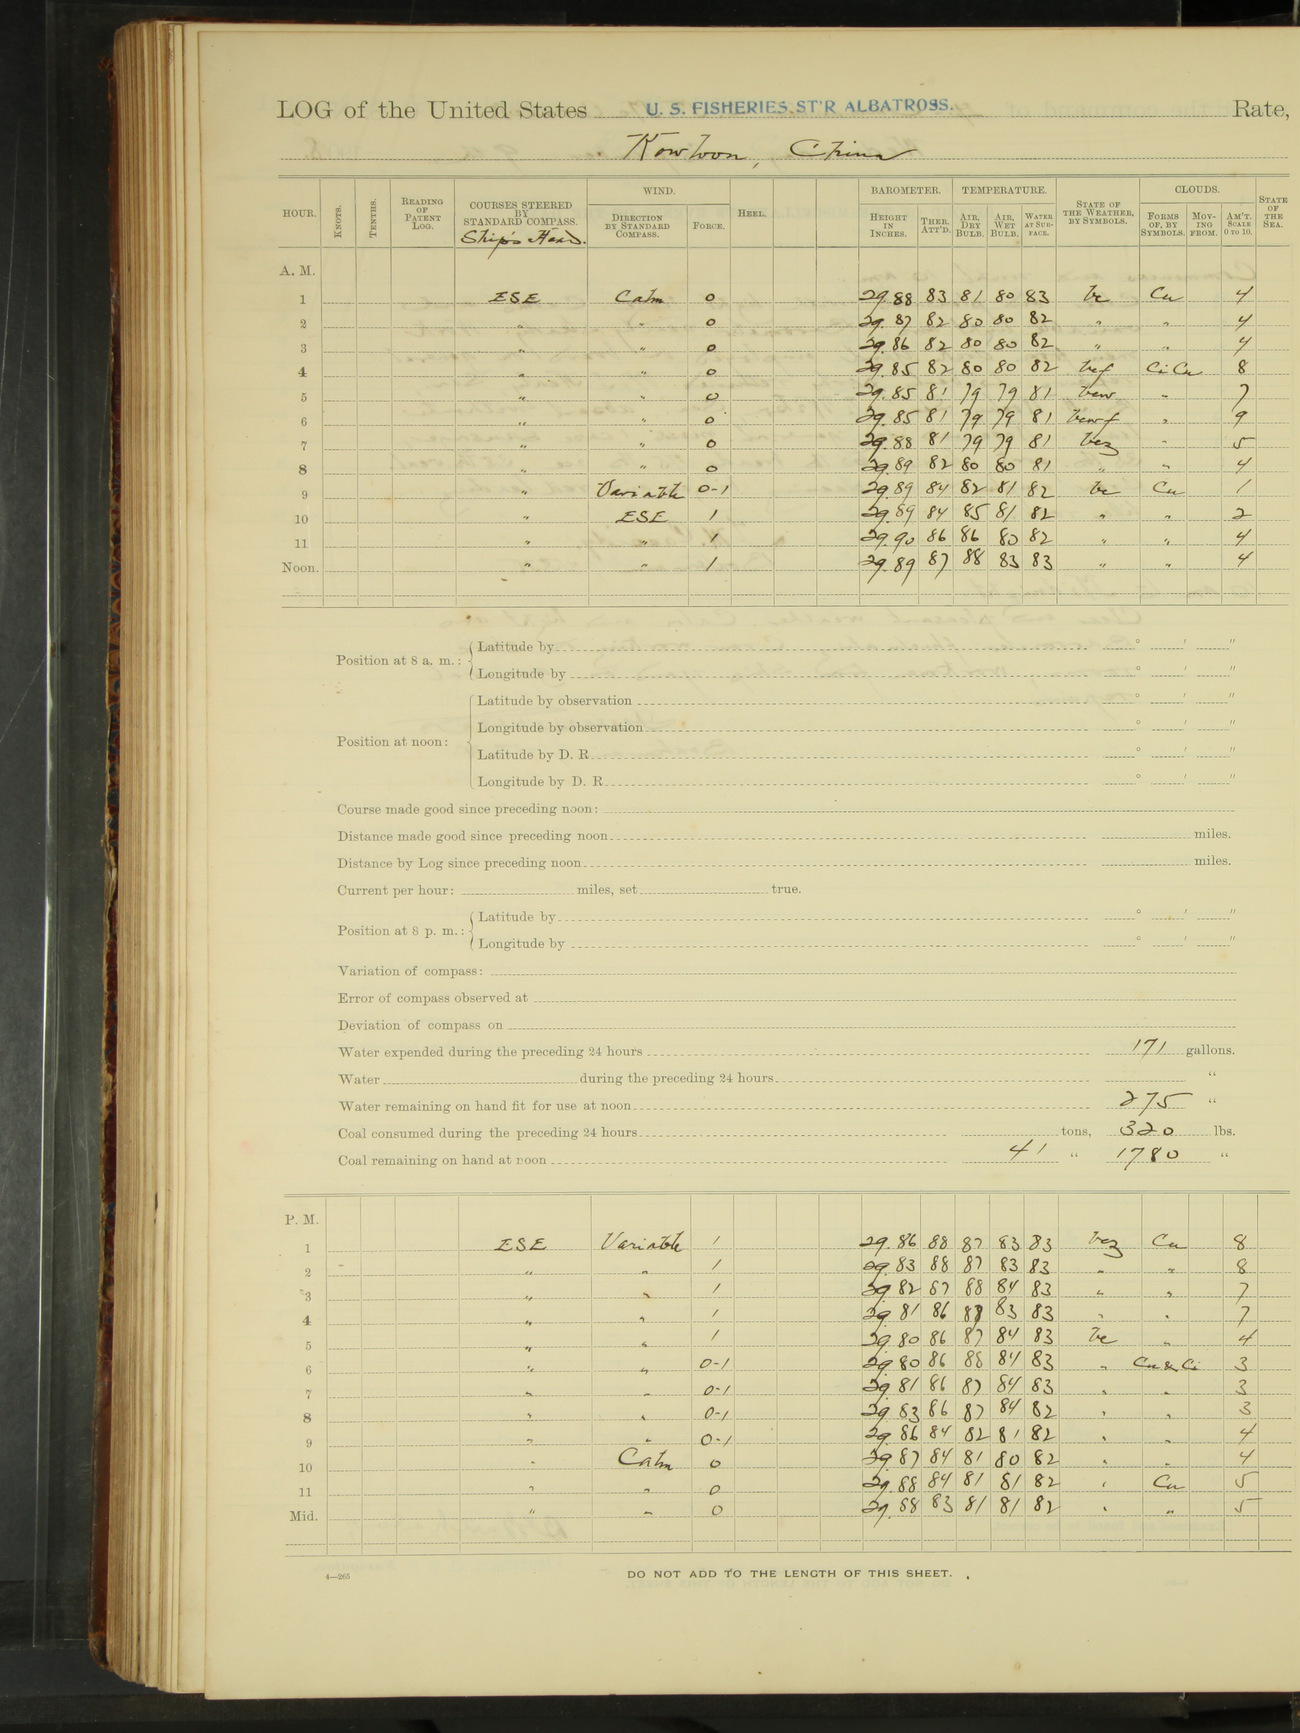 LOG of the United States U. S. FISHERIES ST'R ALBATROSS. Rate,
Kowloon, China
HOUR. KNOTS. TENTHS. READING OF PATENT LOG. COURSES STEERED BY STANDARD COMPASS. Ship's Head. WIND. DIRECTION BY STANDARD COMPASS. FORCE. HEEL. BAROMETER. HEIGHT IN INCHES. THER. ATT'D. TEMPERATURE. AIR, DRY BULB. AIR, WET BULB. WATER AT SURFACE. STATE OF THE WEATHER, BY SYMBOLS. CLOUDS. FORMS OF, BY SYMBOLS. MOVING FROM. AM'T. SCALE 0 TO 10. STATE OF THE SEA.
A. M.
1 ESE Calm 0 29.88 83 81 80 83 bc Cu 4
2 " " 0 29.87 82 80 80 82 " " 4
3 " " 0 29.86 82 80 80 82 " " 4
4 " " 0 29.85 82 80 80 82 bcf CiCu 8
5 " " 0 29.85 81 79 79 81 bcw " 7
6 " " 0 29.85 81 79 79 81 bcwf " 9
7 " " 0 29.88 81 79 79 81 bcz " 5
8 " " 0 29.89 82 80 80 81 " " 4
9 " Variable 0-1 29.89 84 82 81 82 bc Cu 1
10 " ESE 1 29.89 84 85 81 82 " " 2
11 " " 1 29.90 86 86 80 82 " " 4
Noon. " " 1 29.89 87 88 83 83 " " 4
Position at 8 a. m.: Latitude by ° ' "
Longitude by ° ' "
Position at noon: Latitude by observation ° ' "
Longitude by observation ° ' "
Latitude by D. R. ° ' "
Longitude by D. R. ° ' "
Course made good since preceding noon:
Distance made good since preceding noon miles.
Distance by Log since preceding noon miles.
Current per hour: miles, set true.
Position at 8 p. m.: Latitude by ° ' "
Longitude by ° ' "
Variation of compass:
Error of compass observed at
Deviation of compass on
Water expended during the preceding 24 hours 171 gallons.
Water during the preceding 24 hours "
Water remaining on hand fit for use at noon 275 "
Coal consumed during the preceding 24 hours tons, 320 lbs.
Coal remaining on hand at noon 41 " 1780 "
P. M.
1 ESE Variable 1 29.86 88 87 83 83 bcz Cu 8
2 " " 1 29.83 88 87 83 83 " " 8
3 " " 1 29.82 87 88 84 83 " " 7
4 " " 1 29.81 86 83 83 " " 7
5 " " 1 29.80 86 87 84 83 bc " 4
6 " " 0-1 29.80 86 88 84 83 " Cu & Ci 3
7 " " 0-1 29.81 86 87 84 83 " " 3
8 " " 0-1 29.83 86 87 84 82 " " 3
9 " " 0-1 29.86 84 82 81 82 " " 4
10 " Calm 0 29.87 84 81 80 82 " " 4
11 " " 0 29.88 84 81 81 82 " Cu 5
Mid. " " 0 29.88 83 81 81 82 " " 5
4—265
DO NOT ADD TO THE LENGTH OF THIS SHEET.